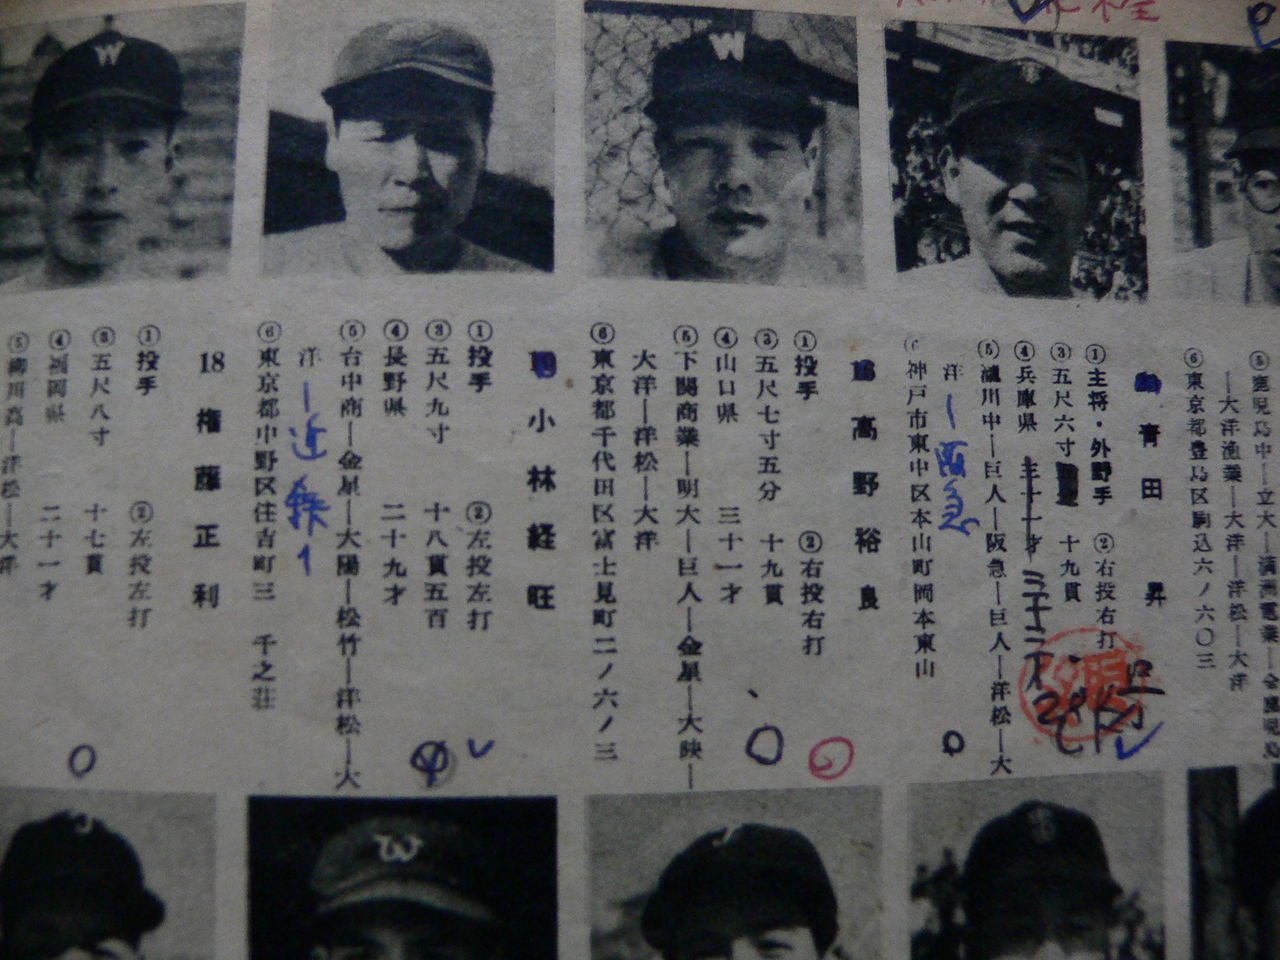 ⑤鹿児島中―立大―満洲電業―全鹿児島
―大洋漁業―大洋―洋松―大洋
⑥東京都豊島区駒込六ノ六〇三
青田 昇
①主将・外野手 ②右投右打
③五尺六寸 十九貫
④兵庫県 三十一才 三十二才
⑤滝川中―巨人―阪急―巨人―洋松―大
洋―阪急
神戸市東中区本山町岡本東山
高野裕良
①投手 ②右投右打
③五尺七寸五分 十九貫
④山口県 三十一才
⑤下関商業―明大―巨人―金星―大映―
大洋―洋松―大洋
⑥東京都千代田区富士見町二ノ六ノ三
小林経旺
①投手 ②左投左打
③五尺九寸 十八貫五百
④長野県 二十九才
⑤台中商―金星―大陽―松竹―洋松―大
洋―近鉄
⑥東京都中野区住吉町三 千之荘
18 権藤正利
①投手 ②左投左打
③五尺八寸 十七貫
④福岡県 二十一才
⑤柳川高―洋松―大洋
W
W
W